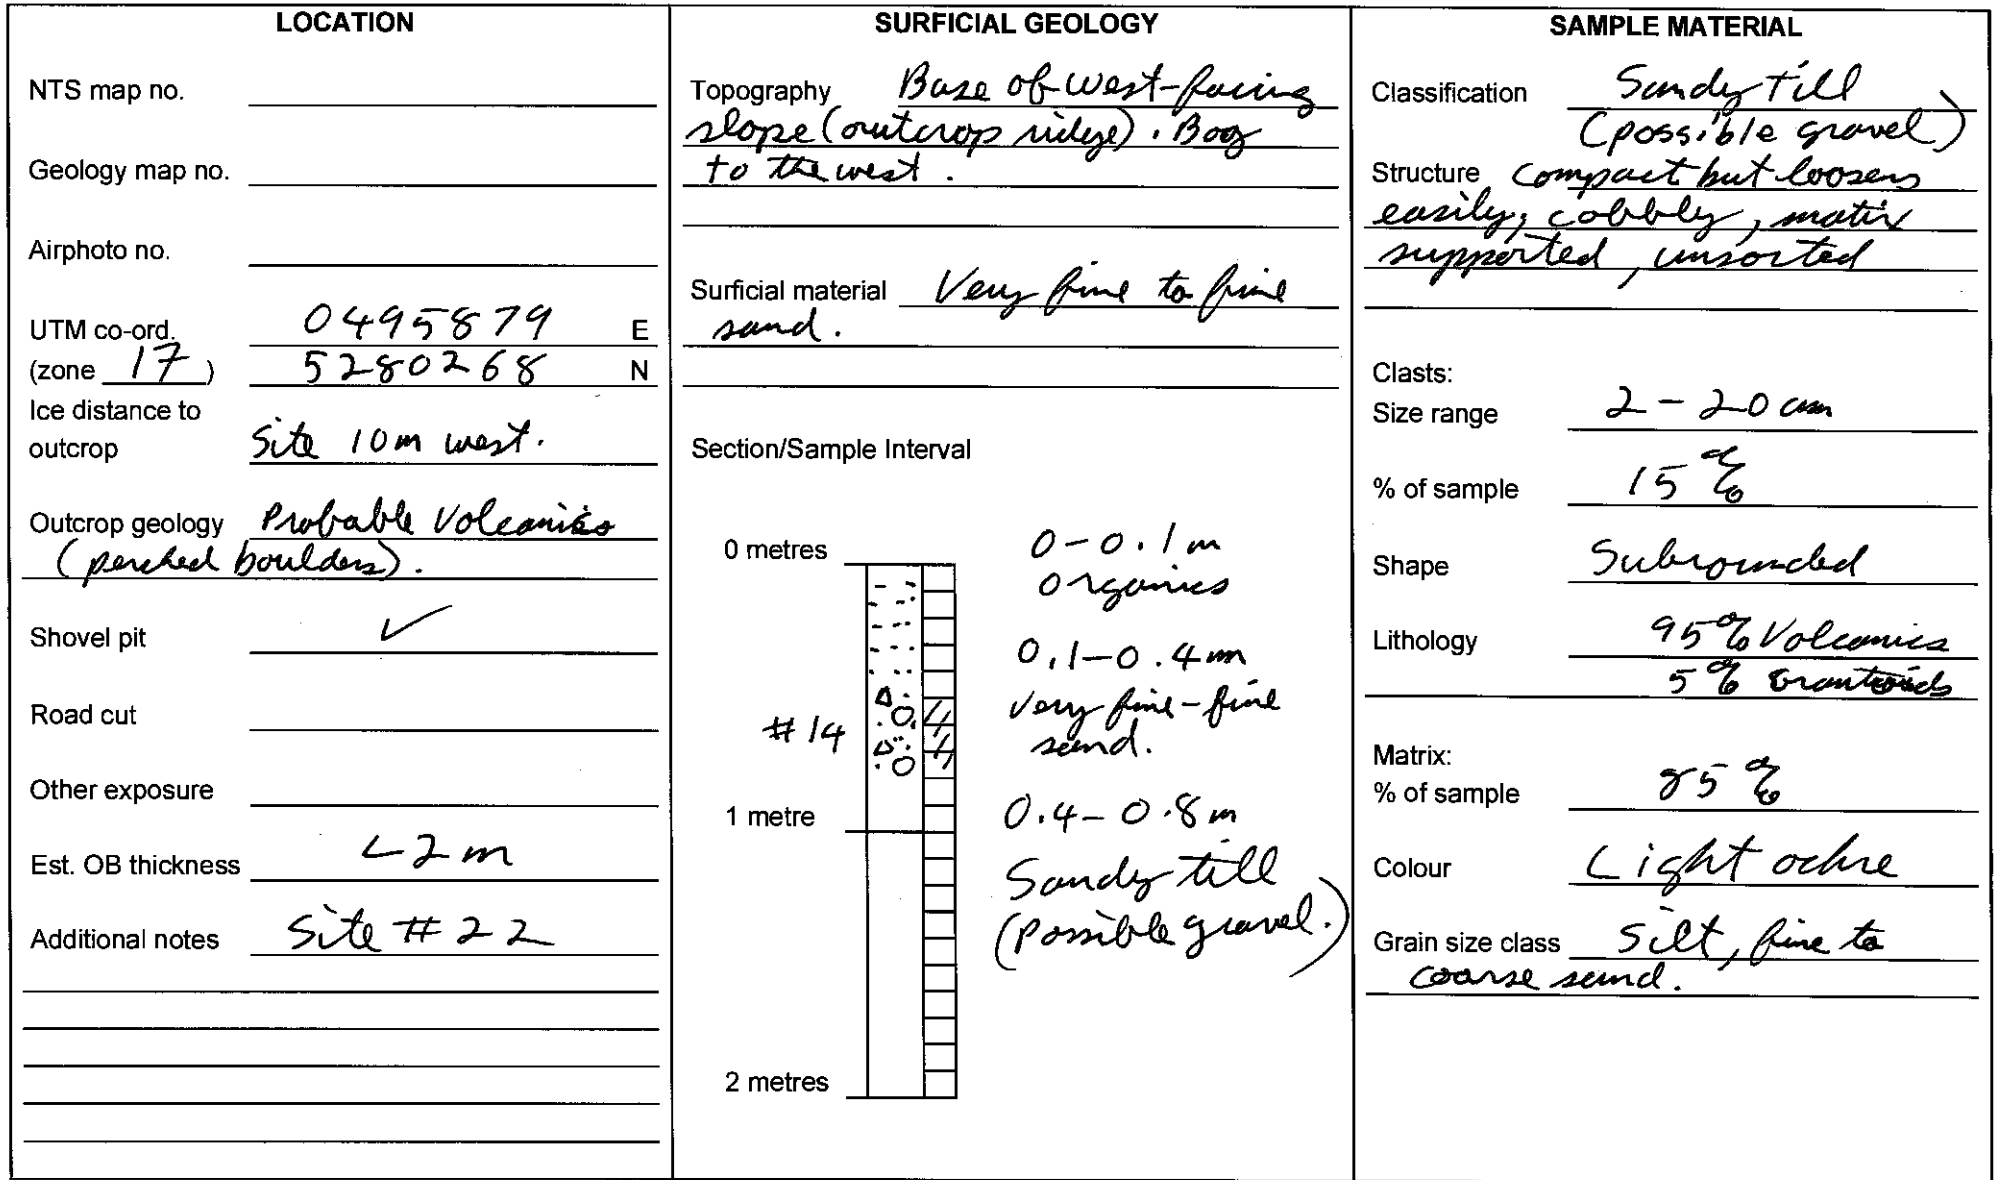 LOCATION
NTS map no.
Geology map no.
Airphoto no.
UTM co-ord. 0495879 E
(zone 17) 5280268 N
Ice distance to
outcrop Site 10m west.
Outcrop geology Probable Volcanics
(perched boulders).
Shovel pit ✓
Road cut
Other exposure
Est. OB thickness <2m
Additional notes Site #22
SURFICIAL GEOLOGY
Topography Base of west-facing
slope (outcrop ridge). Bog
to the west.
Surficial material Very fine to fine
sand.
Section/Sample Interval
0 metres
#14
1 metre
2 metres
0-0.1m
Organics
0.1-0.4m
Very fine-fine
sand.
0.4-0.8m
Sandy till
(possible gravel.)
SAMPLE MATERIAL
Classification Sandy Till
(possible gravel)
Structure Compact but loosens
easily, cobbly, matix
supported, unsorted
Clasts:
Size range 2-20 cm
% of sample 15%
Shape Subrounded
Lithology 95% Volcanics
5% Grantoids
Matrix:
% of sample 85%
Colour Light ochre
Grain size class Silt, fine to
coarse sand.